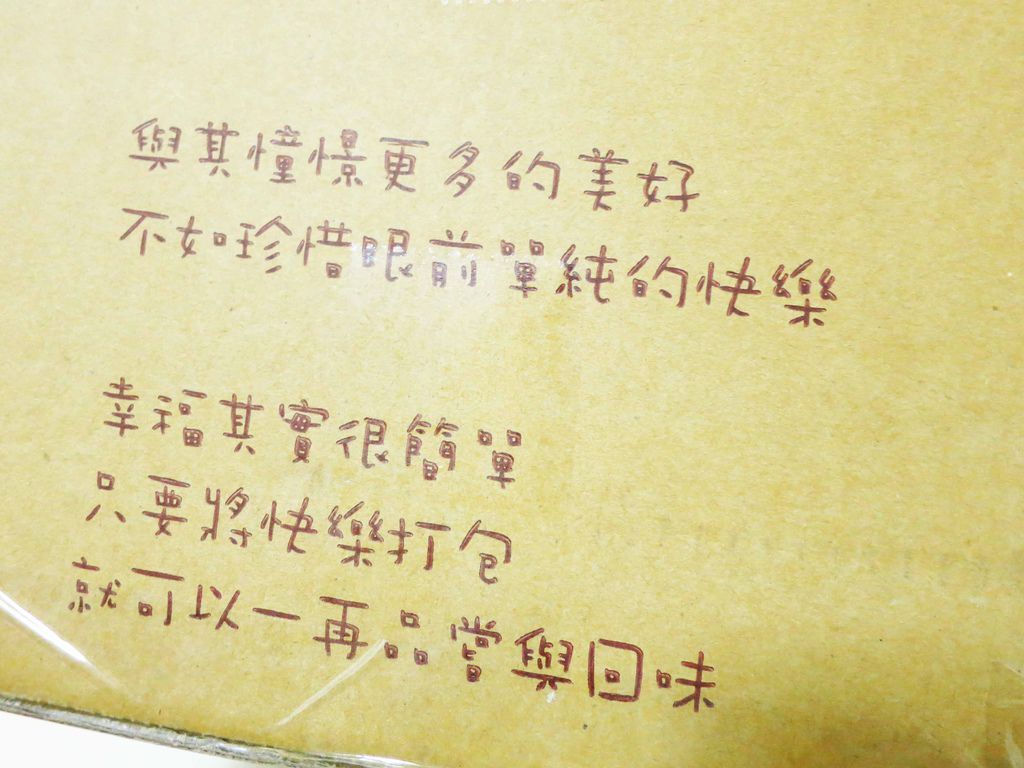 與其憧憬更多的美好
不如珍惜眼前單純的快樂
幸福其實很簡單
只要將快樂打包
就可以一再品嘗與回味